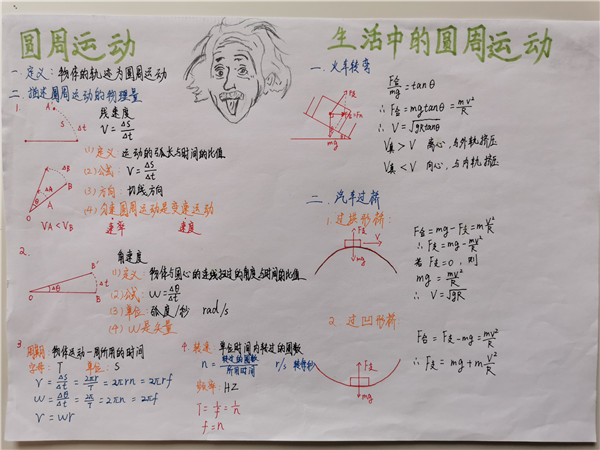 圆周运动
一.定义：物体的轨迹为圆周运动
二.描述圆周运动的物理量
1.
A'
S
Δt
A
O
线速度
V=ΔS/Δt
(1)定义：运动的弧长与时间的比值
(2)公式：V=ΔS/Δt
(3)方向：切线方向
(4)匀速圆周运动是变速运动
速率 速度
ΔB
ΔA
B
A
O
VA<VB
2.
角速度
B'
Δt
B
Δθ
O
(1)定义：物体与圆心的连线扫过的角度与时间的比值
(2)公式：ω=Δθ/Δt
(3)单位：弧度/秒 rad/s
(4) ω是矢量
3.周期：物体运动一周所用的时间
字母：T 单位：S
v=ΔS/Δt=2πr/T=2πrn=2πrf
ω=Δθ/Δt=2π/T=2πn=2πf
v=ωr
4.转速：单位时间内转过的圈数
n=转过的圈数/所用时间 r/s 转每秒
频率：HZ
T=1/f=1/n
f=n
生活中的圆周运动
一.火车转弯
F支
F合=Fn
mg
F合/mg=tanθ
∴F合=mgtanθ=mv²/R
∴V=√gRtanθ
V真>V 离心，与外轨挤压
V真<V 向心，与内轨挤压
二.汽车过桥
1.过拱形桥：
F支
V
mg
F合=mg-F支=mV²/R
∴F支=mg-mv²/R
若F支=0，则
mg=mv²/R
∴V=√gR
2.过凹形桥：
F支
mg
F合=F支-mg=mv²/R
∴F支=mg+mV²/R